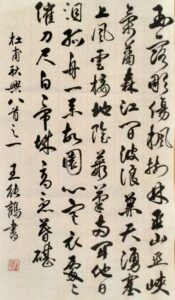 玉露彫傷楓樹林巫山巫峽
氣蕭森江間波浪兼天湧塞
上風雲接地陰叢菊兩開他日
淚孤舟一繫故園心寒衣處々
催刀尺白帝城高急暮砧
杜甫秋興八首之一 王能鶴書